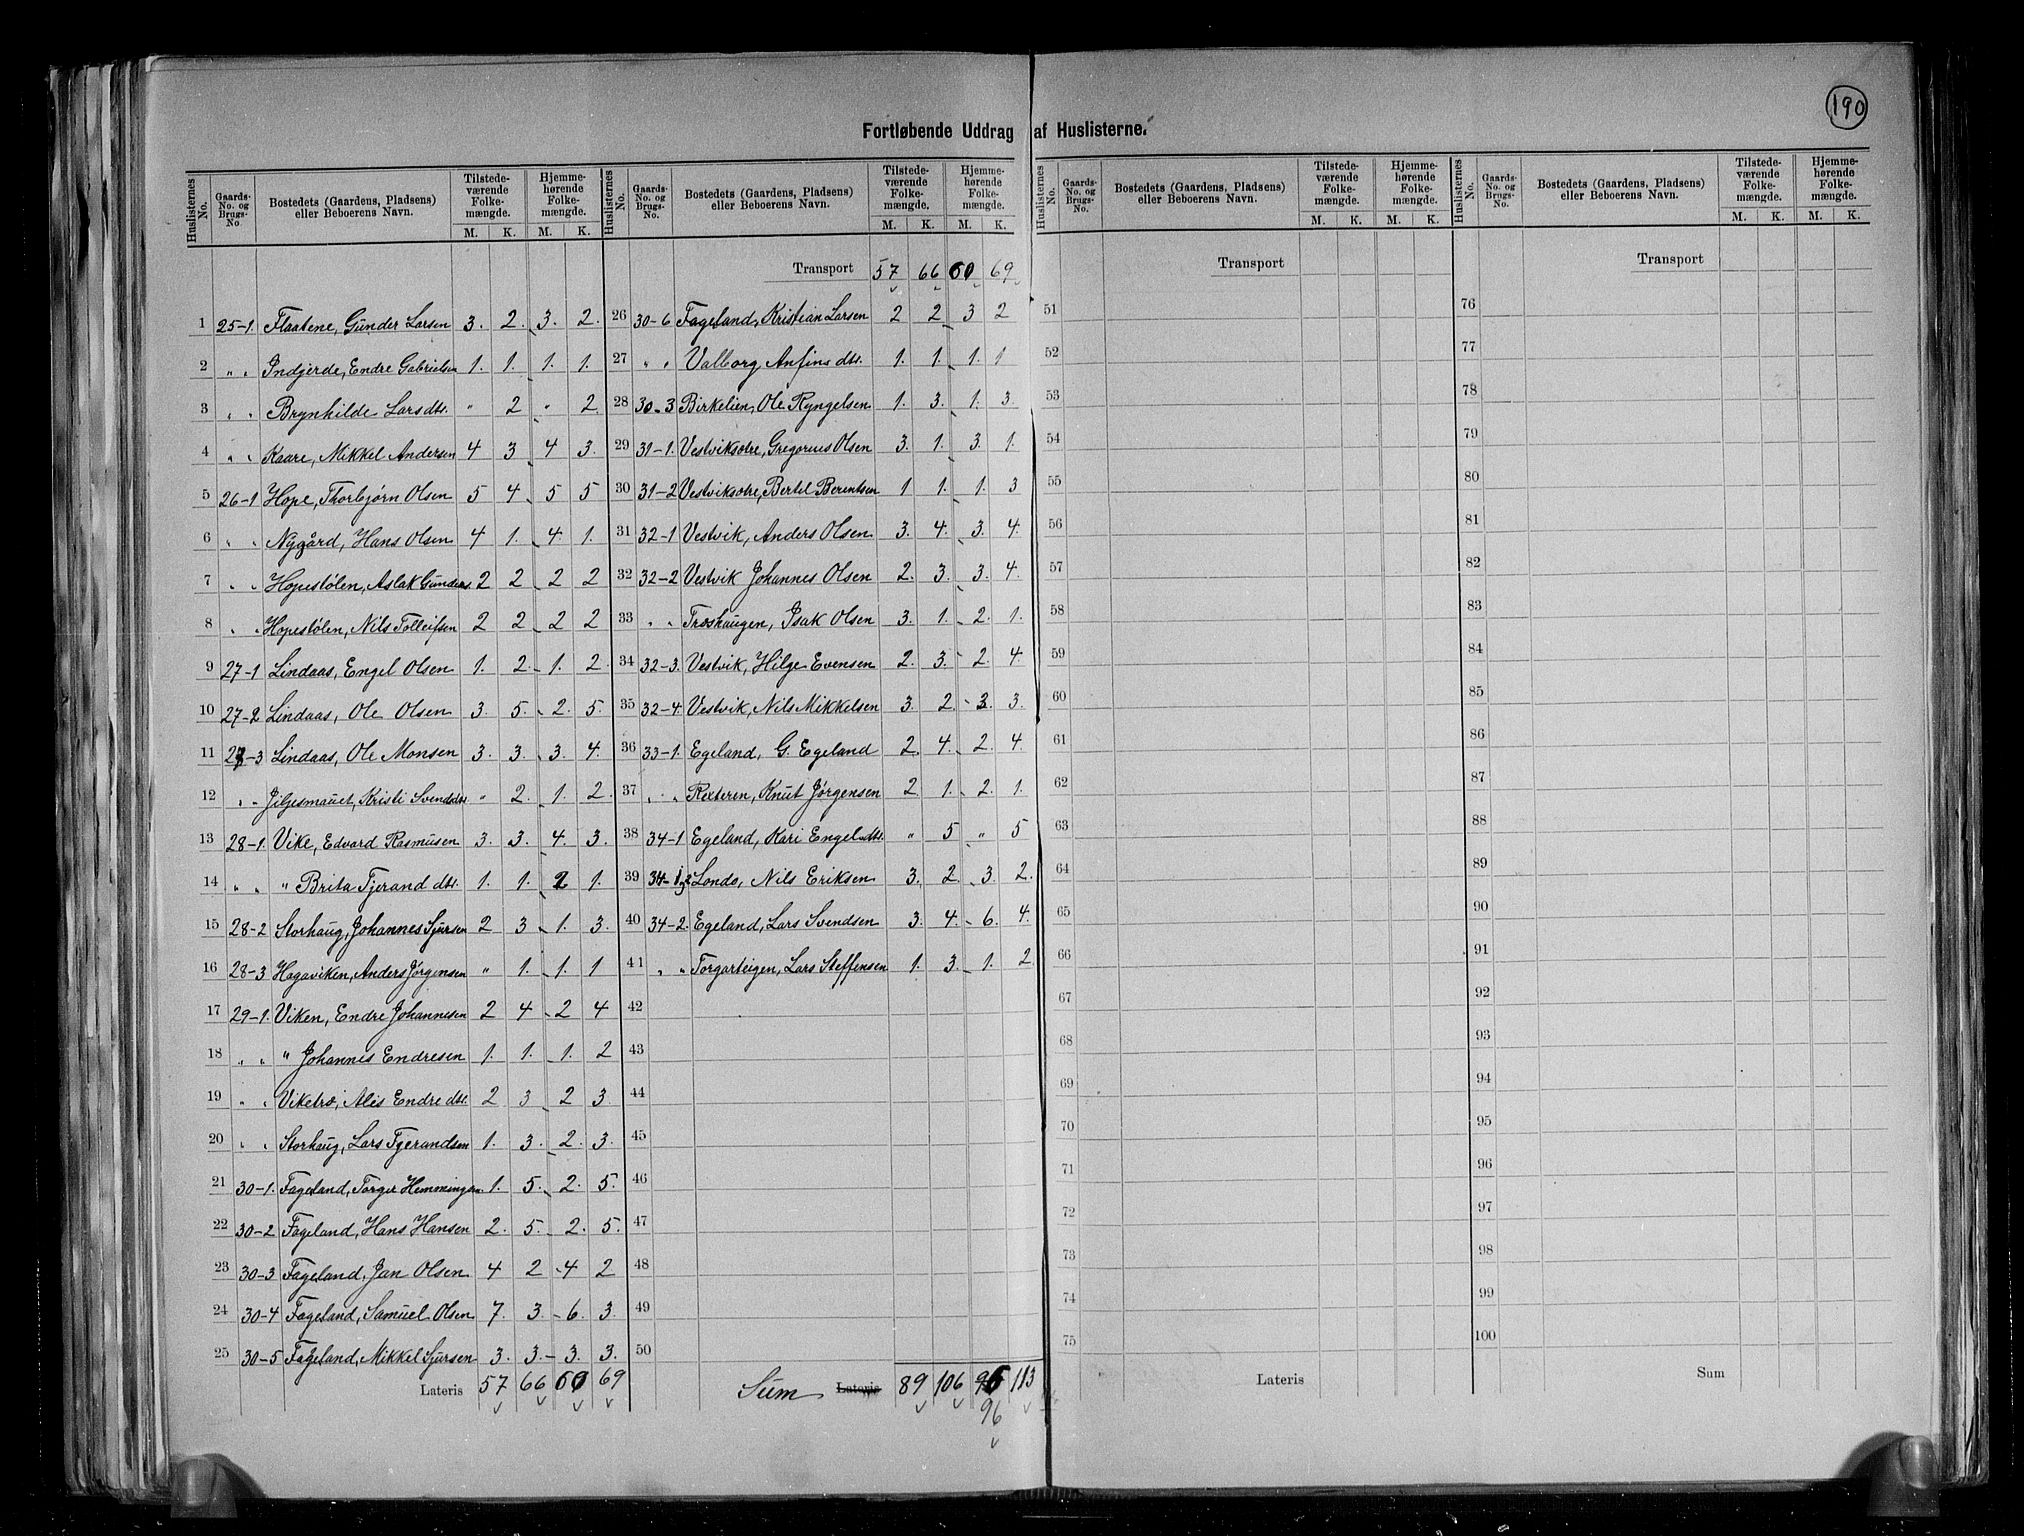 190
Fortløbende Uddrag af Huslisterne.
Huslisternes No. | Gaards-No. og Brugs-No. | Bostedets (Gaardens, Pladsens) eller Beboerens Navn. | Tilstedeværende Folkemængde. M. K. | Hjemmehørende Folkemængde. M. K.
1 25-1. Flaatene, Gunder Larsen 3. 2. 3. 2.
2 „ „ Indjerde, Endre Gabrielsen 1. 1. 1. 1.
3 „ „ Brynhilde Larsdtr. „ 2 „ 2
4 „ „ Kaare, Mikkel Andersen 4 3 4 3.
5 26-1 Hope, Thorbjørn Olsen 5 4 5 5
6 „ „ Nygård, Hans Olsen 4 1. 4 1.
7 „ „ Hopestølen, Aslak Gunders. 2 2 2 2
8 „ „ Hopestølen, Nils Tolleifsen 2 2 2 2
9 27-1 Lindaas, Engel Olsen 1. 2 1. 2
10 27-2 Lindaas, Ole Olsen 3. 5. 2. 5.
11 27-3 Lindaas, Ole Monsen 3. 3. 3. 4.
12 „ „ Jiljesmauet, Kristi Svendsdtr. „ 2. 1. 2.
13 28-1. Vike, Edvard Rasmusen 3. 3. 4. 3.
14 „ „ „ Brita Tjerand dtr. 1. 1. 2 1.
15 28-2 Storhaug, Johannes Sjursen 2 3 1. 3.
16 28-3 Hagaviken, Anders Jørgensen „ 1. 1. 1
17 29-1. Viken, Endre Johannesen 2 4 2 4
18 „ „ „ Johannes Endresen 1. 1. 1. 2
19 „ „ Viketræ, Alis Endre dtr. 2 3 2 3
20 „ „ Storhaug, Lars Tjerandsen 1. 3. 2. 3.
21 30-1. Fageland, Torger Hemmingsen 1. 5. 2. 5.
22 30-2 Fageland, Hans Hansen 2. 5. 2. 5.
23 30-3 Fageland, Jan Olsen 4 2 4 2
24 30-4 Fageland, Samuel Olsen 7. 3. 6. 3.
25 30-5 Fageland, Mikkel Sjursen 3. 3. 3. 3.
Lateris 57 66 60 69
Huslisternes No. | Gaards-No. og Brugs-No. | Bostedets (Gaardens, Pladsens) eller Beboerens Navn. | Tilstedeværende Folkemængde. M. K. | Hjemmehørende Folkemængde. M. K.
Transport 57 66 60 69
26 30-6 Fageland, Kristian Larsen 2 2 3 2
27 „ „ Valborg Anfins dtr. 1. 1. 1. 1
28 30-3 Birkelien, Ole Ryngelsen 1. 3. 1. 3.
29 31-1. Vestviksøre, Gregorius Olsen 3. 1. 3. 1.
30 31-2 Vestviksøre, Bertel Berentsen 1 1. 1. 3
31 32-1 Vestvik, Anders Olsen 3. 4. 3. 4.
32 32-2 Vestvik Johannes Olsen 2. 3. 3. 4.
33 „ „ Træshaugen, Isak Olsen 3. 1. 2. 1.
34 32-3. Vestvik, Hilge Evensen 2. 3. 2. 4
35 32-4. Vestvik, Nils Mikkelsen 3. 2 3. 3.
36 33-1. Egeland, G. Egeland 2. 4. 2. 4.
37 „ „ Rexteren, Knut Jørgensen 2. 1. 2. 1.
38 34-1 Egeland, Kari Engelsdtr. „ 5 „ 5
39 34-1,2 Londo, Nils Eriksen 3. 2. 3. 2.
40 34-2. Egeland, Lars Svendsen 3. 4. 6. 4.
41 „ „ Torgarteigen, Lars Steffensen 1. 3. 1. 2.
42
43
44
45
46
47
48
49
50
Sum Lateris 89 106 96 113
96
Huslisternes No. | Gaards-No. og Brugs-No. | Bostedets (Gaardens, Pladsens) eller Beboerens Navn. | Tilstedeværende Folkemængde. M. K. | Hjemmehørende Folkemængde. M. K.
Transport
51
52
53
54
55
56
57
58
59
60
61
62
63
64
65
66
67
68
69
70
71
72
73
74
75
Lateris
Huslisternes No. | Gaards-No. og Brugs-No. | Bostedets (Gaardens, Pladsens) eller Beboerens Navn. | Tilstedeværende Folkemængde. M. K. | Hjemmehørende Folkemængde. M. K.
Transport
76
77
78
79
80
81
82
83
84
85
86
87
88
89
90
91
92
93
94
95
96
97
98
99
100
Sum